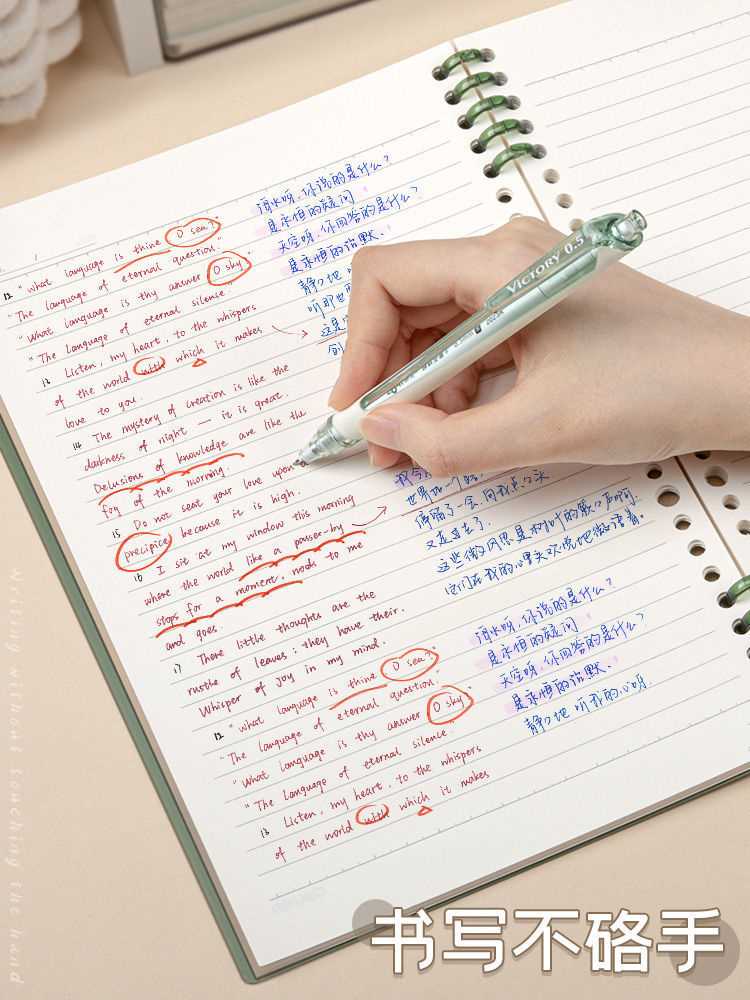 12 "What language is thine O sea?"
"The language of eternal question."
"What language is thy answer O sky
"The Language of eternal silence."
13 Listen, my heart, to the whispers
of the world with which it makes
love to you.
14 The mystery of creation is like the
darkness of night — it is great.
Delusions of knowledge are like the
foy of the morning.
15 Do not seat your love upon
precipice because it is high.
16 I sit at my window this morning
where the world like a passer-by
stops for a moment, nods to me
and goes.
17 There little thoughts are the
rusthe of leaves; they have their
Whisper of joy in my mind.
12 "What language is thine O sea?"
"The language of eternal question."
"What language is thy answer O sky
"The Language of eternal silence."
13 Listen, my heart, to the whispers
of the world with which it makes
海水呀，你说的是什么？
是永恒的疑问
天空呀，你回答的是什么？
是永恒的沉默.
静静地
听那世
这是
世界如一个路
停留了一会，向我点点头
又走过去了.
这些微风思是树叶的簌簌声啊
它们在我的心里欢悦地微语着.
海水呀，你说的是什么？
是永恒的疑问
天空呀，你回答的是什么？
是永恒的沉默.
静静地 听 我的心呀
VICTORY 0.5
writing without touching the hand
书写不硌手